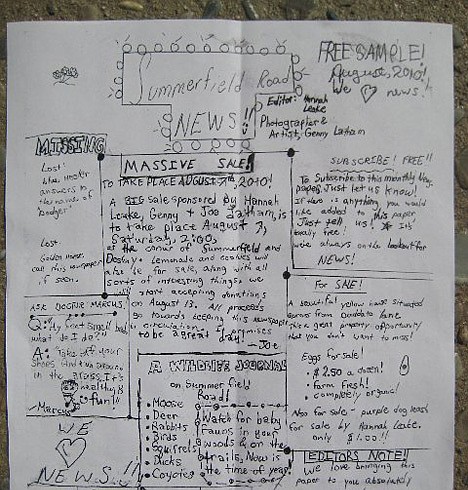 FREE SAMPLE!
August, 2010!
We ♡ news!
Summerfield Road
NEWS!!
Editor: Hannah
Leake
Photographer &
Artist, Genny Latham
MISSING
Lost:
answers to
the name of
Lost
call this newspaper
if seen.
MASSIVE SALE!
TO TAKE PLACE AUGUST 7th, 2010!
A BIG sale sponsored by Hannah
Leake, Genny + Joe Latham, is
to take place August 7,
Saturday, 2:00,
at the corner of Summerfield and
Lemonade and cookies will
also be for sale, along with all
sorts of interesting things. We
start accepting donations
on August 13. All proceeds
go towards keeping this newspaper
in circulation. It promises
to be a great day!
-Joe
SUBSCRIBE! FREE!!
To Subscribe to this monthly
paper, Just let us know!
If there is anything you would
like added to this paper
Just tell us! It's
totally free!
We're always on the lookout for
NEWS!
ASK DOCTOR MARCUS!
Q: My feet smell bad,
what do I do?
A: Take off your
shoes and run around
in the grass. It's
healthy &
fun!!
-Marcus
WE
♡
NEWS!!
A WILDLIFE JOURNAL
on Summerfield
Road!
• Moose
• Deer
• Rabbits
• Birds
• Squirrels
• Ducks
• Coyotes
Watch for baby
fawns in your
woods & on the
trails. Now is
the time of year.
For SALE!
A beautiful yellow house situated
across from
great property opportunity
that you don't want to miss!
Eggs for sale!
• $2.50 a dozen!
• Farm fresh!
• completely organic!
Also for sale - purple dog leash
for sale by Hannah Leake.
only $1.00!!
EDITORS NOTE!
We love bringing this
paper to you absolutely